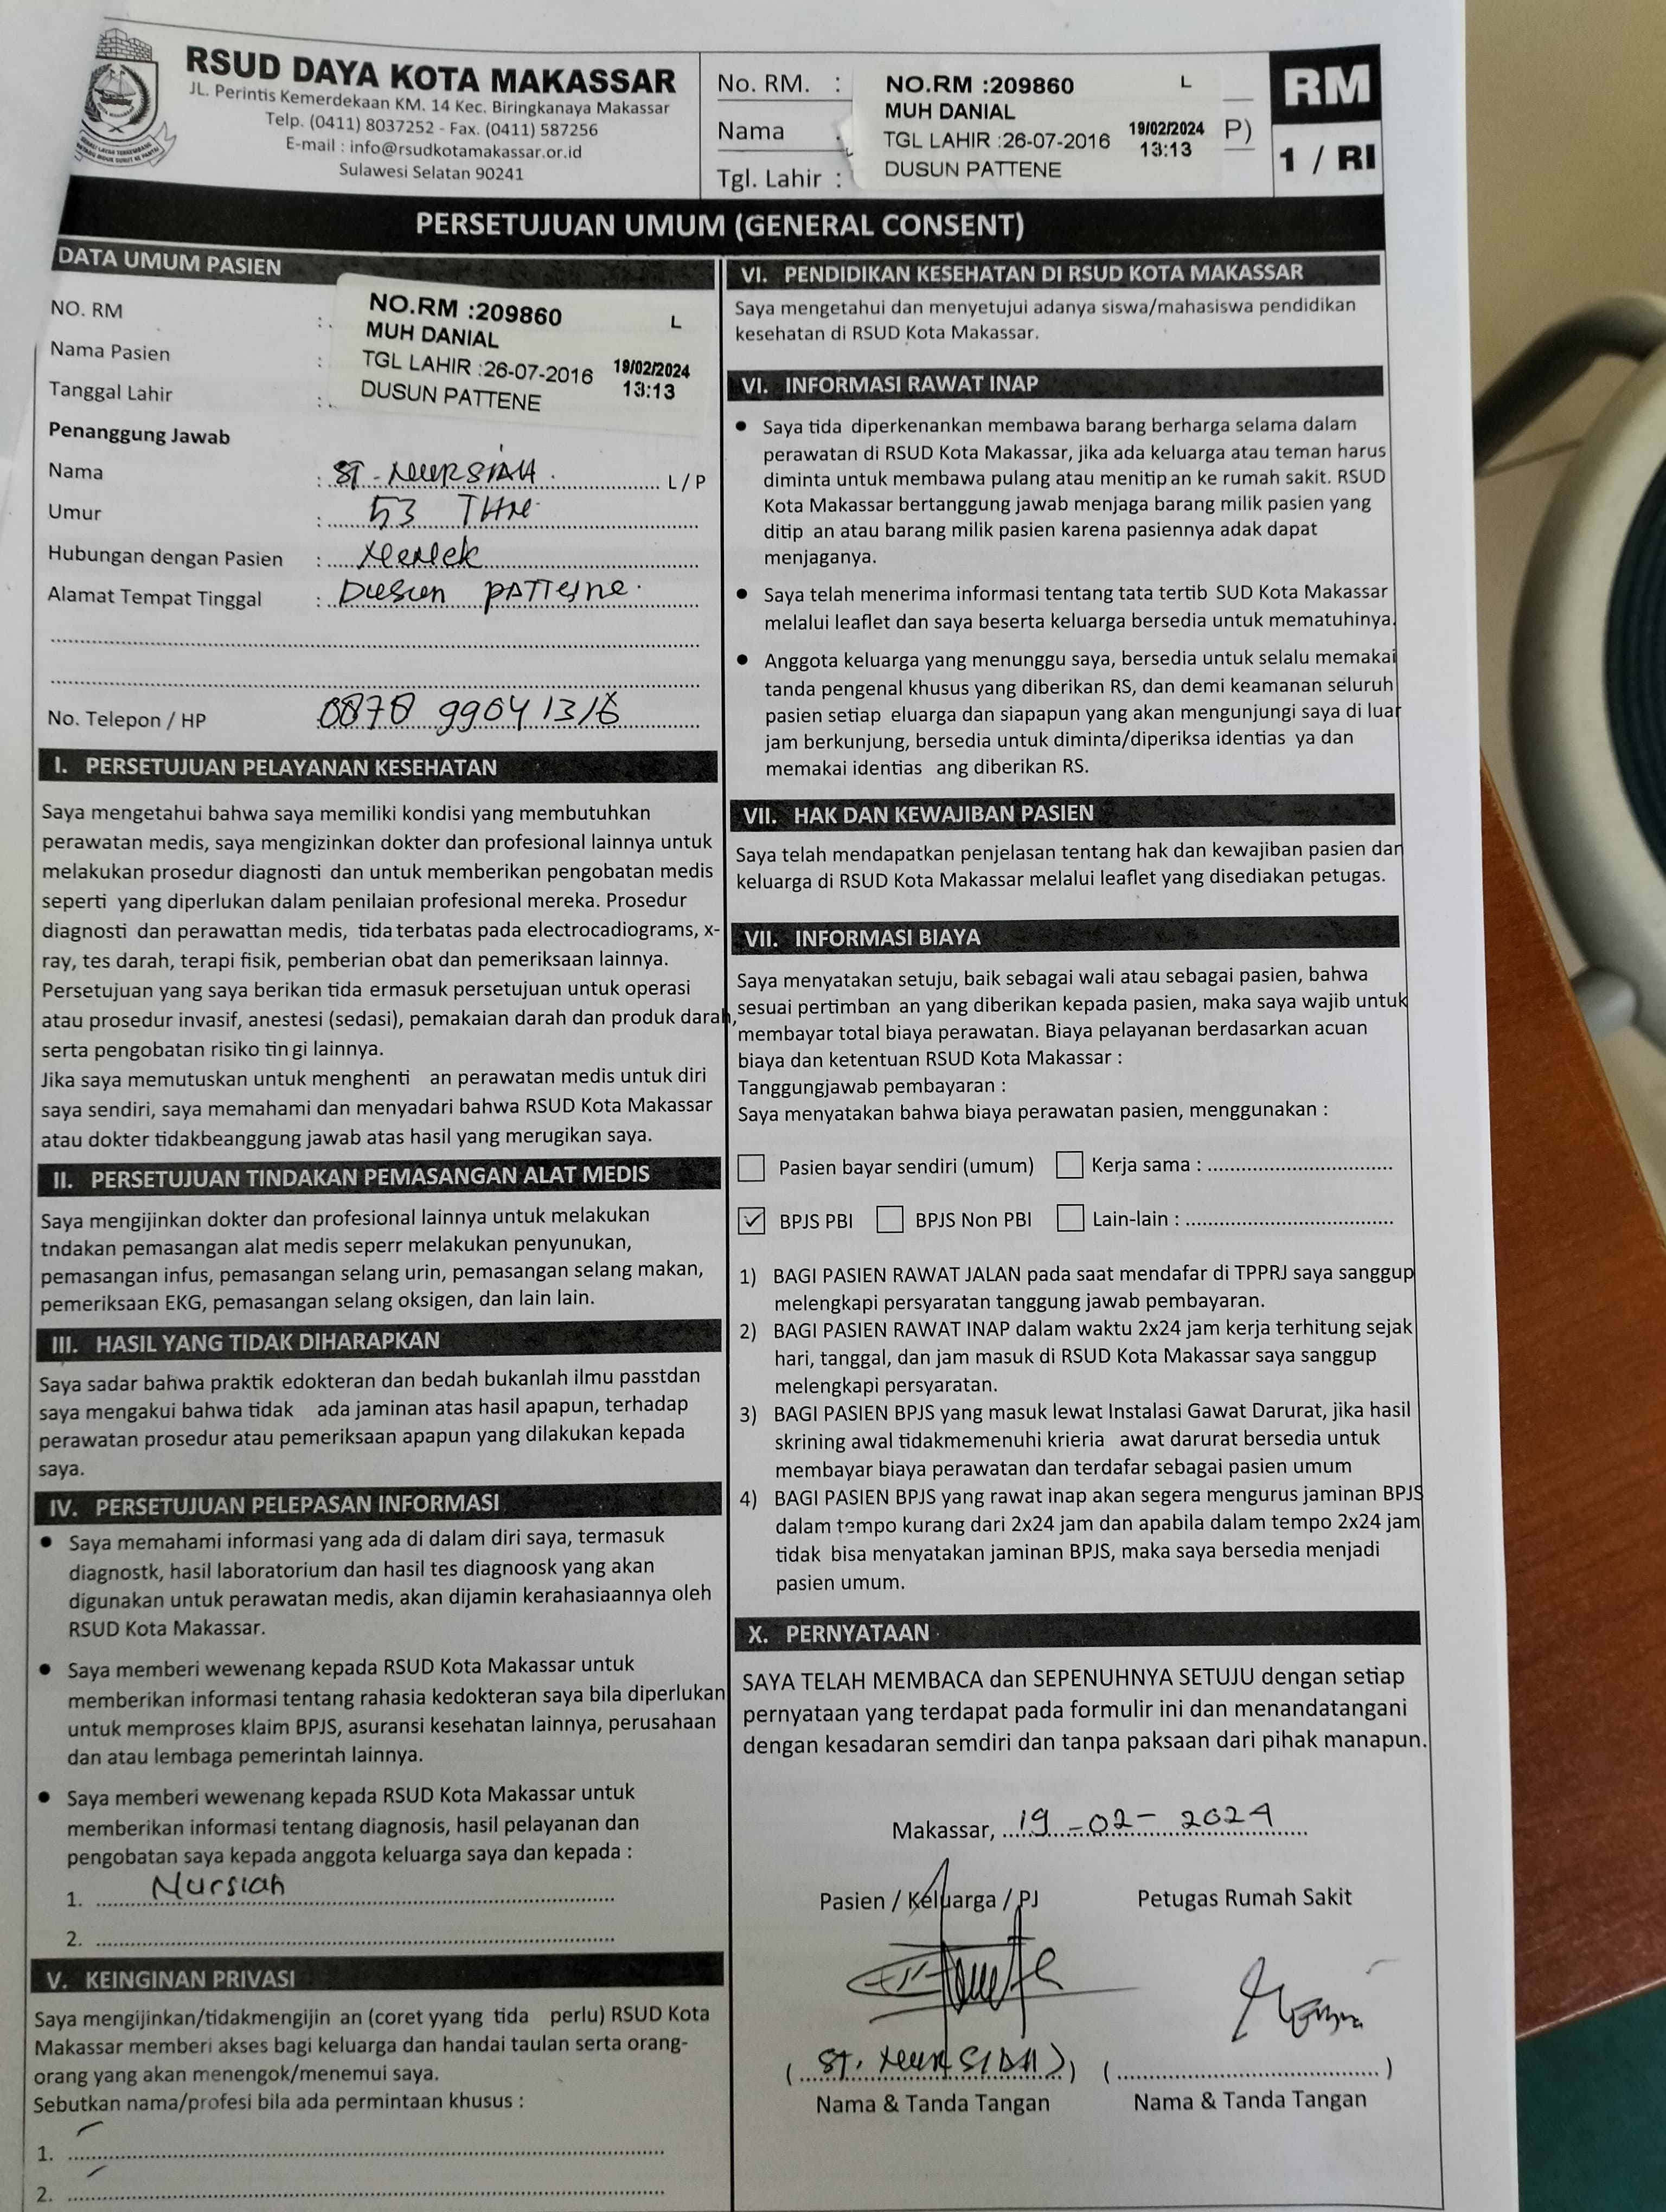 RSUD DAYA KOTA MAKASSAR
JL. Perintis Kemerdekaan KM. 14 Kec. Biringkanaya Makassar
Telp. (0411) 8037252 - Fax. (0411) 587256
E-mail : info@rsudkotamakassar.or.id
Sulawesi Selatan 90241
No. RM. :
Nama
Tgl. Lahir :
NO.RM :209860 L
MUH DANIAL
TGL LAHIR :26-07-2016 19/02/2024 13:13
DUSUN PATTENE
P)
RM
1 / RI
PERSETUJUAN UMUM (GENERAL CONSENT)
DATA UMUM PASIEN
NO. RM :
Nama Pasien :
Tanggal Lahir :
NO.RM :209860 L
MUH DANIAL
TGL LAHIR :26-07-2016 19/02/2024 13:13
DUSUN PATTENE
Penanggung Jawab
Nama : ST. NURSIAH L / P
Umur : 53 THN
Hubungan dengan Pasien : Nenek
Alamat Tempat Tinggal : Dusun PATTene
No. Telepon / HP
I. PERSETUJUAN PELAYANAN KESEHATAN
Saya mengetahui bahwa saya memiliki kondisi yang membutuhkan
perawatan medis, saya mengizinkan dokter dan profesional lainnya untuk
melakukan prosedur diagnosti dan untuk memberikan pengobatan medis
seperti yang diperlukan dalam penilaian profesional mereka. Prosedur
diagnosti dan perawattan medis, tida terbatas pada electrocadiograms, x-
ray, tes darah, terapi fisik, pemberian obat dan pemeriksaan lainnya.
Persetujuan yang saya berikan tida ermasuk persetujuan untuk operasi
atau prosedur invasif, anestesi (sedasi), pemakaian darah dan produk darah,
serta pengobatan risiko tin gi lainnya.
Jika saya memutuskan untuk menghenti an perawatan medis untuk diri
saya sendiri, saya memahami dan menyadari bahwa RSUD Kota Makassar
atau dokter tidakbeanggung jawab atas hasil yang merugikan saya.
II. PERSETUJUAN TINDAKAN PEMASANGAN ALAT MEDIS
Saya mengijinkan dokter dan profesional lainnya untuk melakukan
tndakan pemasangan alat medis seperr melakukan penyunukan,
pemasangan infus, pemasangan selang urin, pemasangan selang makan,
pemeriksaan EKG, pemasangan selang oksigen, dan lain lain.
III. HASIL YANG TIDAK DIHARAPKAN
Saya sadar bahwa praktik edokteran dan bedah bukanlah ilmu passtdan
saya mengakui bahwa tidak ada jaminan atas hasil apapun, terhadap
perawatan prosedur atau pemeriksaan apapun yang dilakukan kepada
saya.
IV. PERSETUJUAN PELEPASAN INFORMASI
• Saya memahami informasi yang ada di dalam diri saya, termasuk
diagnostk, hasil laboratorium dan hasil tes diagnoosk yang akan
digunakan untuk perawatan medis, akan dijamin kerahasiaannya oleh
RSUD Kota Makassar.
• Saya memberi wewenang kepada RSUD Kota Makassar untuk
memberikan informasi tentang rahasia kedokteran saya bila diperlukan
untuk memproses klaim BPJS, asuransi kesehatan lainnya, perusahaan
dan atau lembaga pemerintah lainnya.
• Saya memberi wewenang kepada RSUD Kota Makassar untuk
memberikan informasi tentang diagnosis, hasil pelayanan dan
pengobatan saya kepada anggota keluarga saya dan kepada :
1. Nursiah
2.
V. KEINGINAN PRIVASI
Saya mengijinkan/tidakmengijin an (coret yyang tida perlu) RSUD Kota
Makassar memberi akses bagi keluarga dan handai taulan serta orang-
orang yang akan menengok/menemui saya.
Sebutkan nama/profesi bila ada permintaan khusus :
1.
2.
VI. PENDIDIKAN KESEHATAN DI RSUD KOTA MAKASSAR
Saya mengetahui dan menyetujui adanya siswa/mahasiswa pendidikan
kesehatan di RSUD Kota Makassar.
VI. INFORMASI RAWAT INAP
• Saya tida diperkenankan membawa barang berharga selama dalam
perawatan di RSUD Kota Makassar, jika ada keluarga atau teman harus
diminta untuk membawa pulang atau menitip an ke rumah sakit. RSUD
Kota Makassar bertanggung jawab menjaga barang milik pasien yang
ditip an atau barang milik pasien karena pasiennya adak dapat
menjaganya.
• Saya telah menerima informasi tentang tata tertib SUD Kota Makassar
melalui leaflet dan saya beserta keluarga bersedia untuk mematuhinya.
• Anggota keluarga yang menunggu saya, bersedia untuk selalu memakai
tanda pengenal khusus yang diberikan RS, dan demi keamanan seluruh
pasien setiap eluarga dan siapapun yang akan mengunjungi saya di luar
jam berkunjung, bersedia untuk diminta/diperiksa identias ya dan
memakai identias ang diberikan RS.
VII. HAK DAN KEWAJIBAN PASIEN
Saya telah mendapatkan penjelasan tentang hak dan kewajiban pasien dan
keluarga di RSUD Kota Makassar melalui leaflet yang disediakan petugas.
VII. INFORMASI BIAYA
Saya menyatakan setuju, baik sebagai wali atau sebagai pasien, bahwa
sesuai pertimban an yang diberikan kepada pasien, maka saya wajib untuk
membayar total biaya perawatan. Biaya pelayanan berdasarkan acuan
biaya dan ketentuan RSUD Kota Makassar :
Tanggungjawab pembayaran :
Saya menyatakan bahwa biaya perawatan pasien, menggunakan :
☐ Pasien bayar sendiri (umum) ☐ Kerja sama :
☑ BPJS PBI ☐ BPJS Non PBI ☐ Lain-lain :
1) BAGI PASIEN RAWAT JALAN pada saat mendafar di TPPRJ saya sanggup
melengkapi persyaratan tanggung jawab pembayaran.
2) BAGI PASIEN RAWAT INAP dalam waktu 2x24 jam kerja terhitung sejak
hari, tanggal, dan jam masuk di RSUD Kota Makassar saya sanggup
melengkapi persyaratan.
3) BAGI PASIEN BPJS yang masuk lewat Instalasi Gawat Darurat, jika hasil
skrining awal tidakmemenuhi krieria awat darurat bersedia untuk
membayar biaya perawatan dan terdafar sebagai pasien umum
4) BAGI PASIEN BPJS yang rawat inap akan segera mengurus jaminan BPJS
dalam tempo kurang dari 2x24 jam dan apabila dalam tempo 2x24 jam
tidak bisa menyatakan jaminan BPJS, maka saya bersedia menjadi
pasien umum.
X. PERNYATAAN
SAYA TELAH MEMBACA dan SEPENUHNYA SETUJU dengan setiap
pernyataan yang terdapat pada formulir ini dan menandatangani
dengan kesadaran semdiri dan tanpa paksaan dari pihak manapun.
Makassar, 19 - 02 - 2024
Pasien / Keluarga / PJ Petugas Rumah Sakit
( ST. NURSIAH ) ( )
Nama & Tanda Tangan Nama & Tanda Tangan